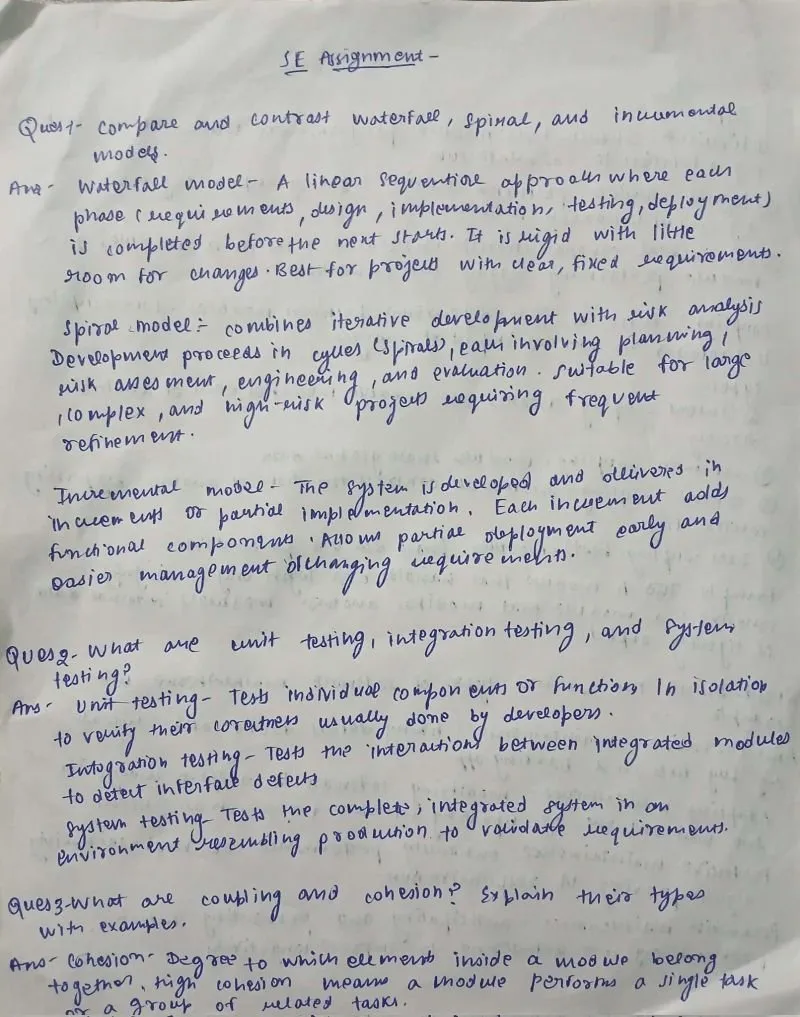 SE Assignment -
Ques1- Compare and contrast waterfall, spiral, and incremental
models.
Ans- Waterfall model - A linear sequential approach where each
phase (requirements, design, implementation, testing, deployment)
is completed before the next starts. It is rigid with little
room for changes. Best for projects with clear, fixed requirements.
Spiral model:- combines iterative development with risk analysis
Development proceeds in cycles (spirals), each involving planning,
risk assesment, engineering, and evaluation. Suitable for large
, complex, and high-risk projects requiring frequent
refinement.
Incremental model - The system is developed and delivered in
increments or partial implementation. Each increment adds
functional components. Allows partial deployment early and
easier management of changing requirements.
Ques2- What are unit testing, integration testing, and system
testing?
Ans- Unit testing - Tests individual components or functions In isolation
to verify their corectness usually done by developers.
Integration testing - Tests the interactions between integrated modules
to detect interface defects
System testing - Tests the complete, integrated system in an
environment resembling production to validate requirements.
Ques3- What are coupling and cohesion? Explain their types
with examples.
Ans- Cohesion - Degree to which elements inside a module belong
together, high cohesion means a module performs a single task
or a group of related tasks.